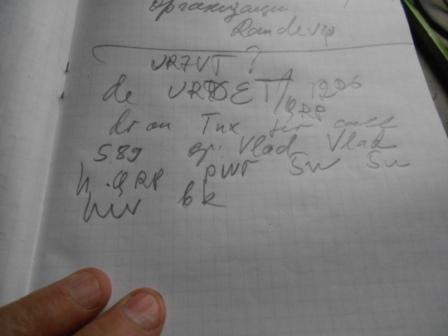 организации
Randevu
UR7VT ?
de UR7QET/QRP 1206
dr om Tnx fer call
589 op. Vlad Vlad
h. QRP pwr 5w 5w
hw bk